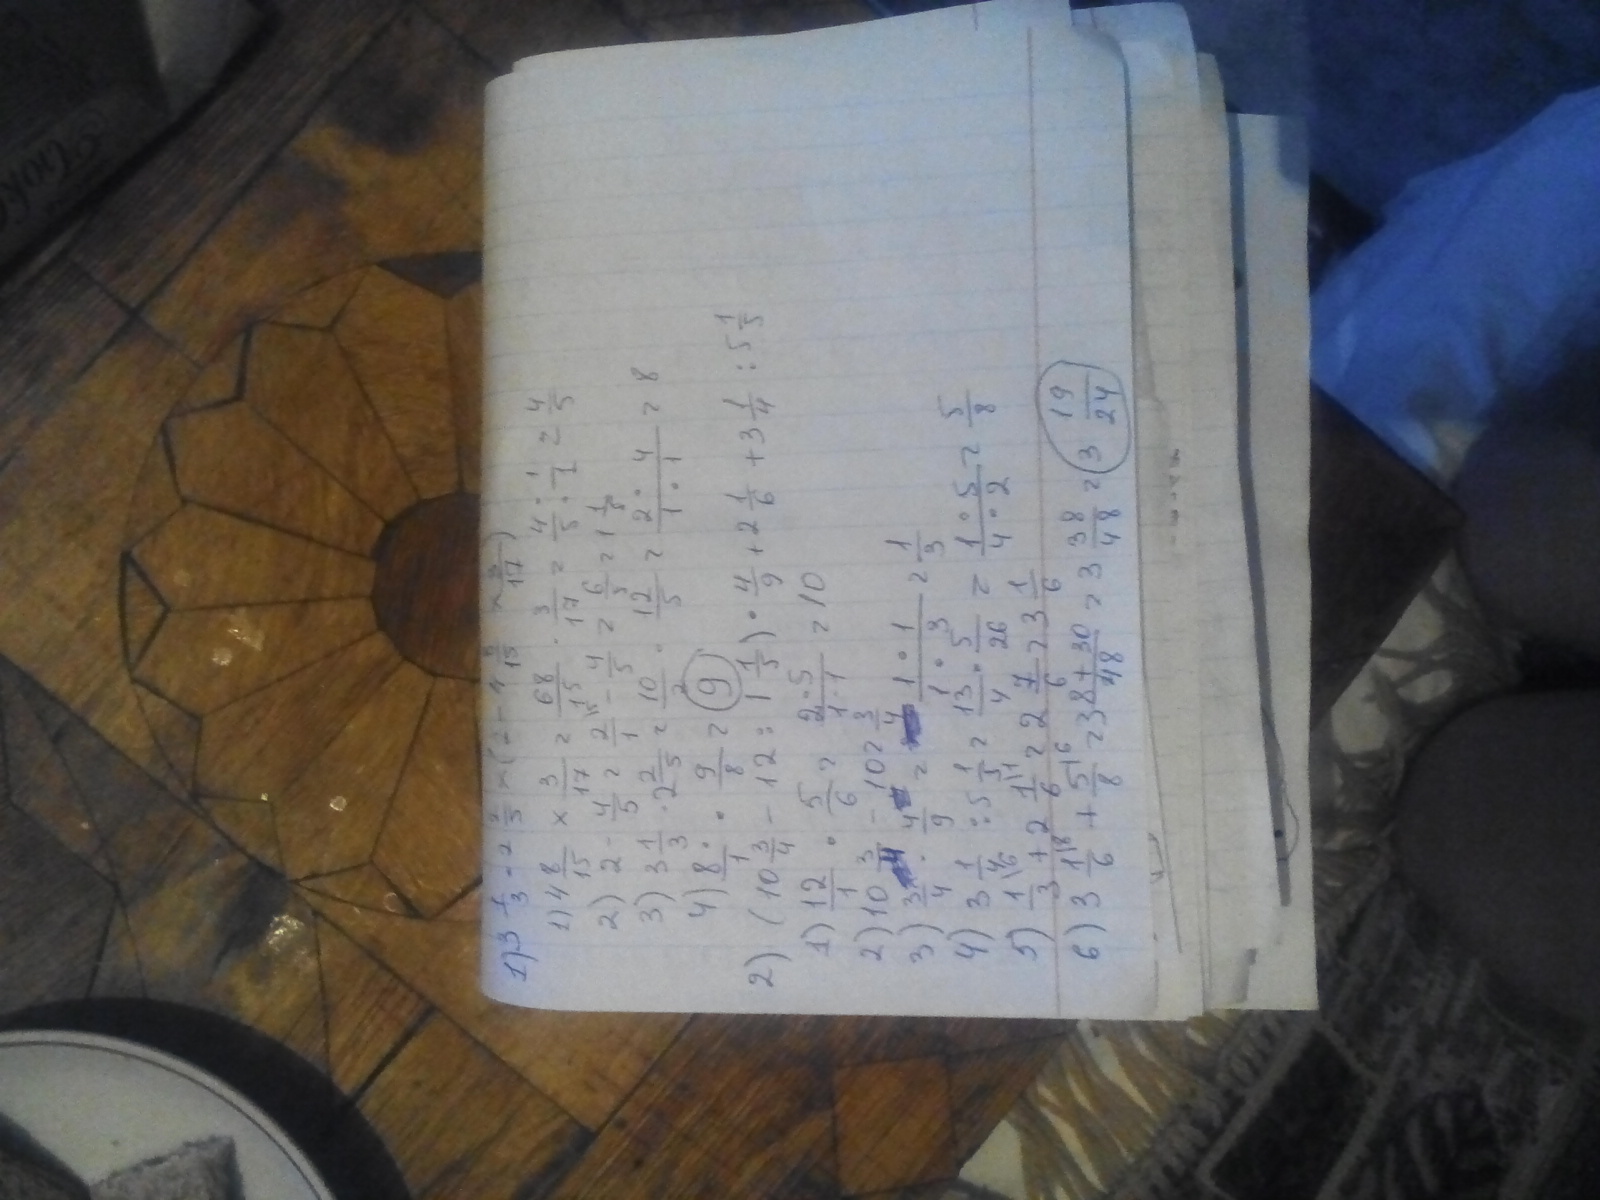 1) 3 1/3 · 2 2/5 × (2 - 4 8/15 × 3/17)
1) 4 8/15 × 3/17 = 68/15 · 3/17 = 4/5 · 1/1 = 4/5
2) 2 - 4/5 = 2/1 - 4/5 = 6/5 = 1 1/5
3) 3 1/3 · 2 2/5 = 10/3 · 12/5 = 2 · 4/1 · 1 = 8
4) 8/1 · 9/8 = 9
2) (10 3/4 - 12 : 1 1/5) · 4/9 + 2 1/6 + 3 1/4 : 5 1/5
1) 12/1 · 5/6 = 2 · 5/1 · 1 = 10
2) 10 3/4 - 10 = 3/4
3) 3/4 · 4/9 = 1 · 1/1 · 3 = 1/3
4) 3 1/4 : 5 1/5 = 13/4 · 5/26 = 1 · 5/4 · 2 = 5/8
5) 1/3 + 2 1/6 = 2 7/6 = 3 1/6
6) 3 1/6 + 5/8 = 3 8+30/48 = 3 38/48 = 3 19/24